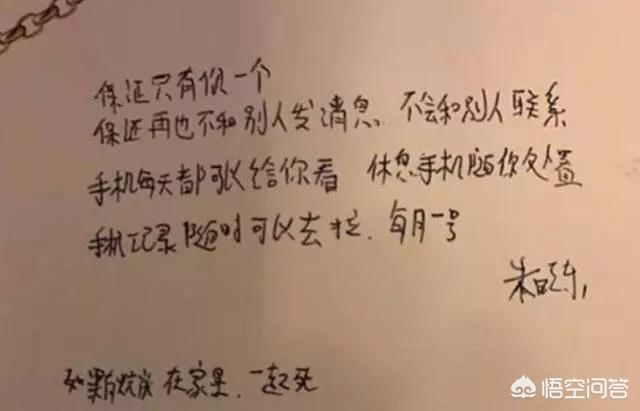 保证只有你一个
保证再也不和别人发消息 不会和别人联系
手机每天都可以给你看 休息手机随你处置
手机记录随时可以去拉. 每月一号
朱晓东
如果 在家里. 一起死
悟空问答